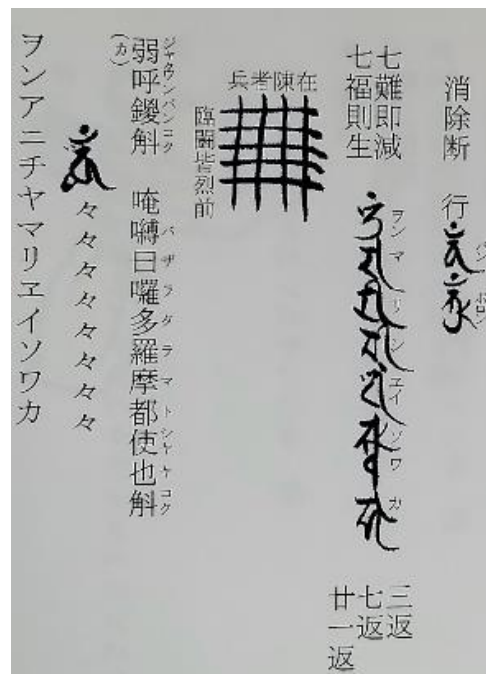 消除断　行
バン　ボロン
七難即減
七福則生
ヲンマリシエイソワカ
三返
七返
廿一返
兵者陳在
臨闘皆烈前
弱呼鑁斛　唵嚩日囉多羅摩都使也斛
ジャクウンバンコク　バザラダラマトシヤヤコク
(カ)
々々々々々々々々
ヲンアニチヤマリヱイソワカ